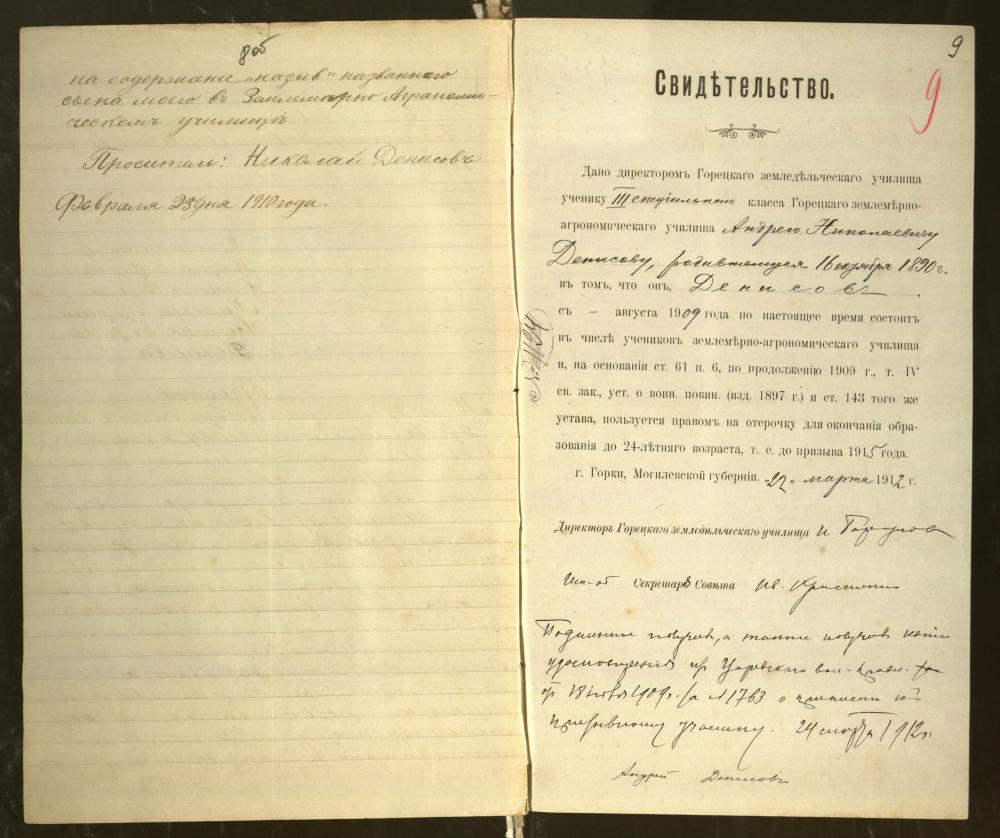 8об
на содержаніе „назыв" названнаго
сына моего въ Землемѣрно Аграноми-
ческомъ училищѣ
Проситель: Николай Денисовъ
Февраля 23 дня 1910 года.
9
9
Свидѣтельство.
Дано директоромъ Горецкаго земледѣльческаго училища
ученику III спеціальнаго класса Горецкаго землемѣрно-
агрономическаго училища Андрею Николаевичу
Денисову, родившемуся 16 октября 1890 г.
въ томъ, что онъ, Денисовъ.
съ – августа 1909 года по настоящее время состоитъ
въ числѣ учениковъ землемѣрно-агрономическаго училища
и, на основаніи ст. 61 п. 6, по продолженію 1909 г., т. IV
св. зак., уст. о воин. повин. (изд. 1897 г.) и ст. 143 того же
устава, пользуется правомъ на отсрочку для окончанія обра-
зованія до 24-лѣтняго возраста, т. е. до призыва 1915 года.
г. Горки, Могилевской губерніи. „22" марта 1912 г.
Директоръ Горецкаго земледѣльческаго училища
Секретарь Совѣта Ив.
Подлинное получ., а также получ. копію
удостовѣренія
1909 г. за № 1763 о припискѣ къ
призывному участку. 24 1912 г.
Андрей Денисовъ